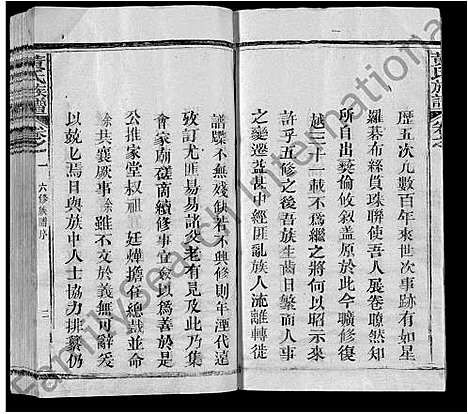 黄氏族譜
卷之
歷五次凡數百年來世次事跡有如星
羅碁布絲貫珠聯使吾人展卷瞭然知
所自出彛倫攸叙蓋原於此今曠修復
越三十一載不爲繼之將何以昭示來
許乎五修之後吾族生齒日繁而人事
之變遷益甚中經匪亂族人流離轉徙
譜牒不無殘缺若不興修則年湮代遠
攷訂尤匪易易諸父老有見及此乃集
會家廟磋商續修事宜僉以爲善於是
公推家堂叔祖 廷燁擔任總裁並命
錄共襄厥事錄雖不文於義無可辭爰
以兢兢焉日與族中人士協力排纂仍
黄氏族譜
卷之一
六修族譜序
二
FamilySearch International